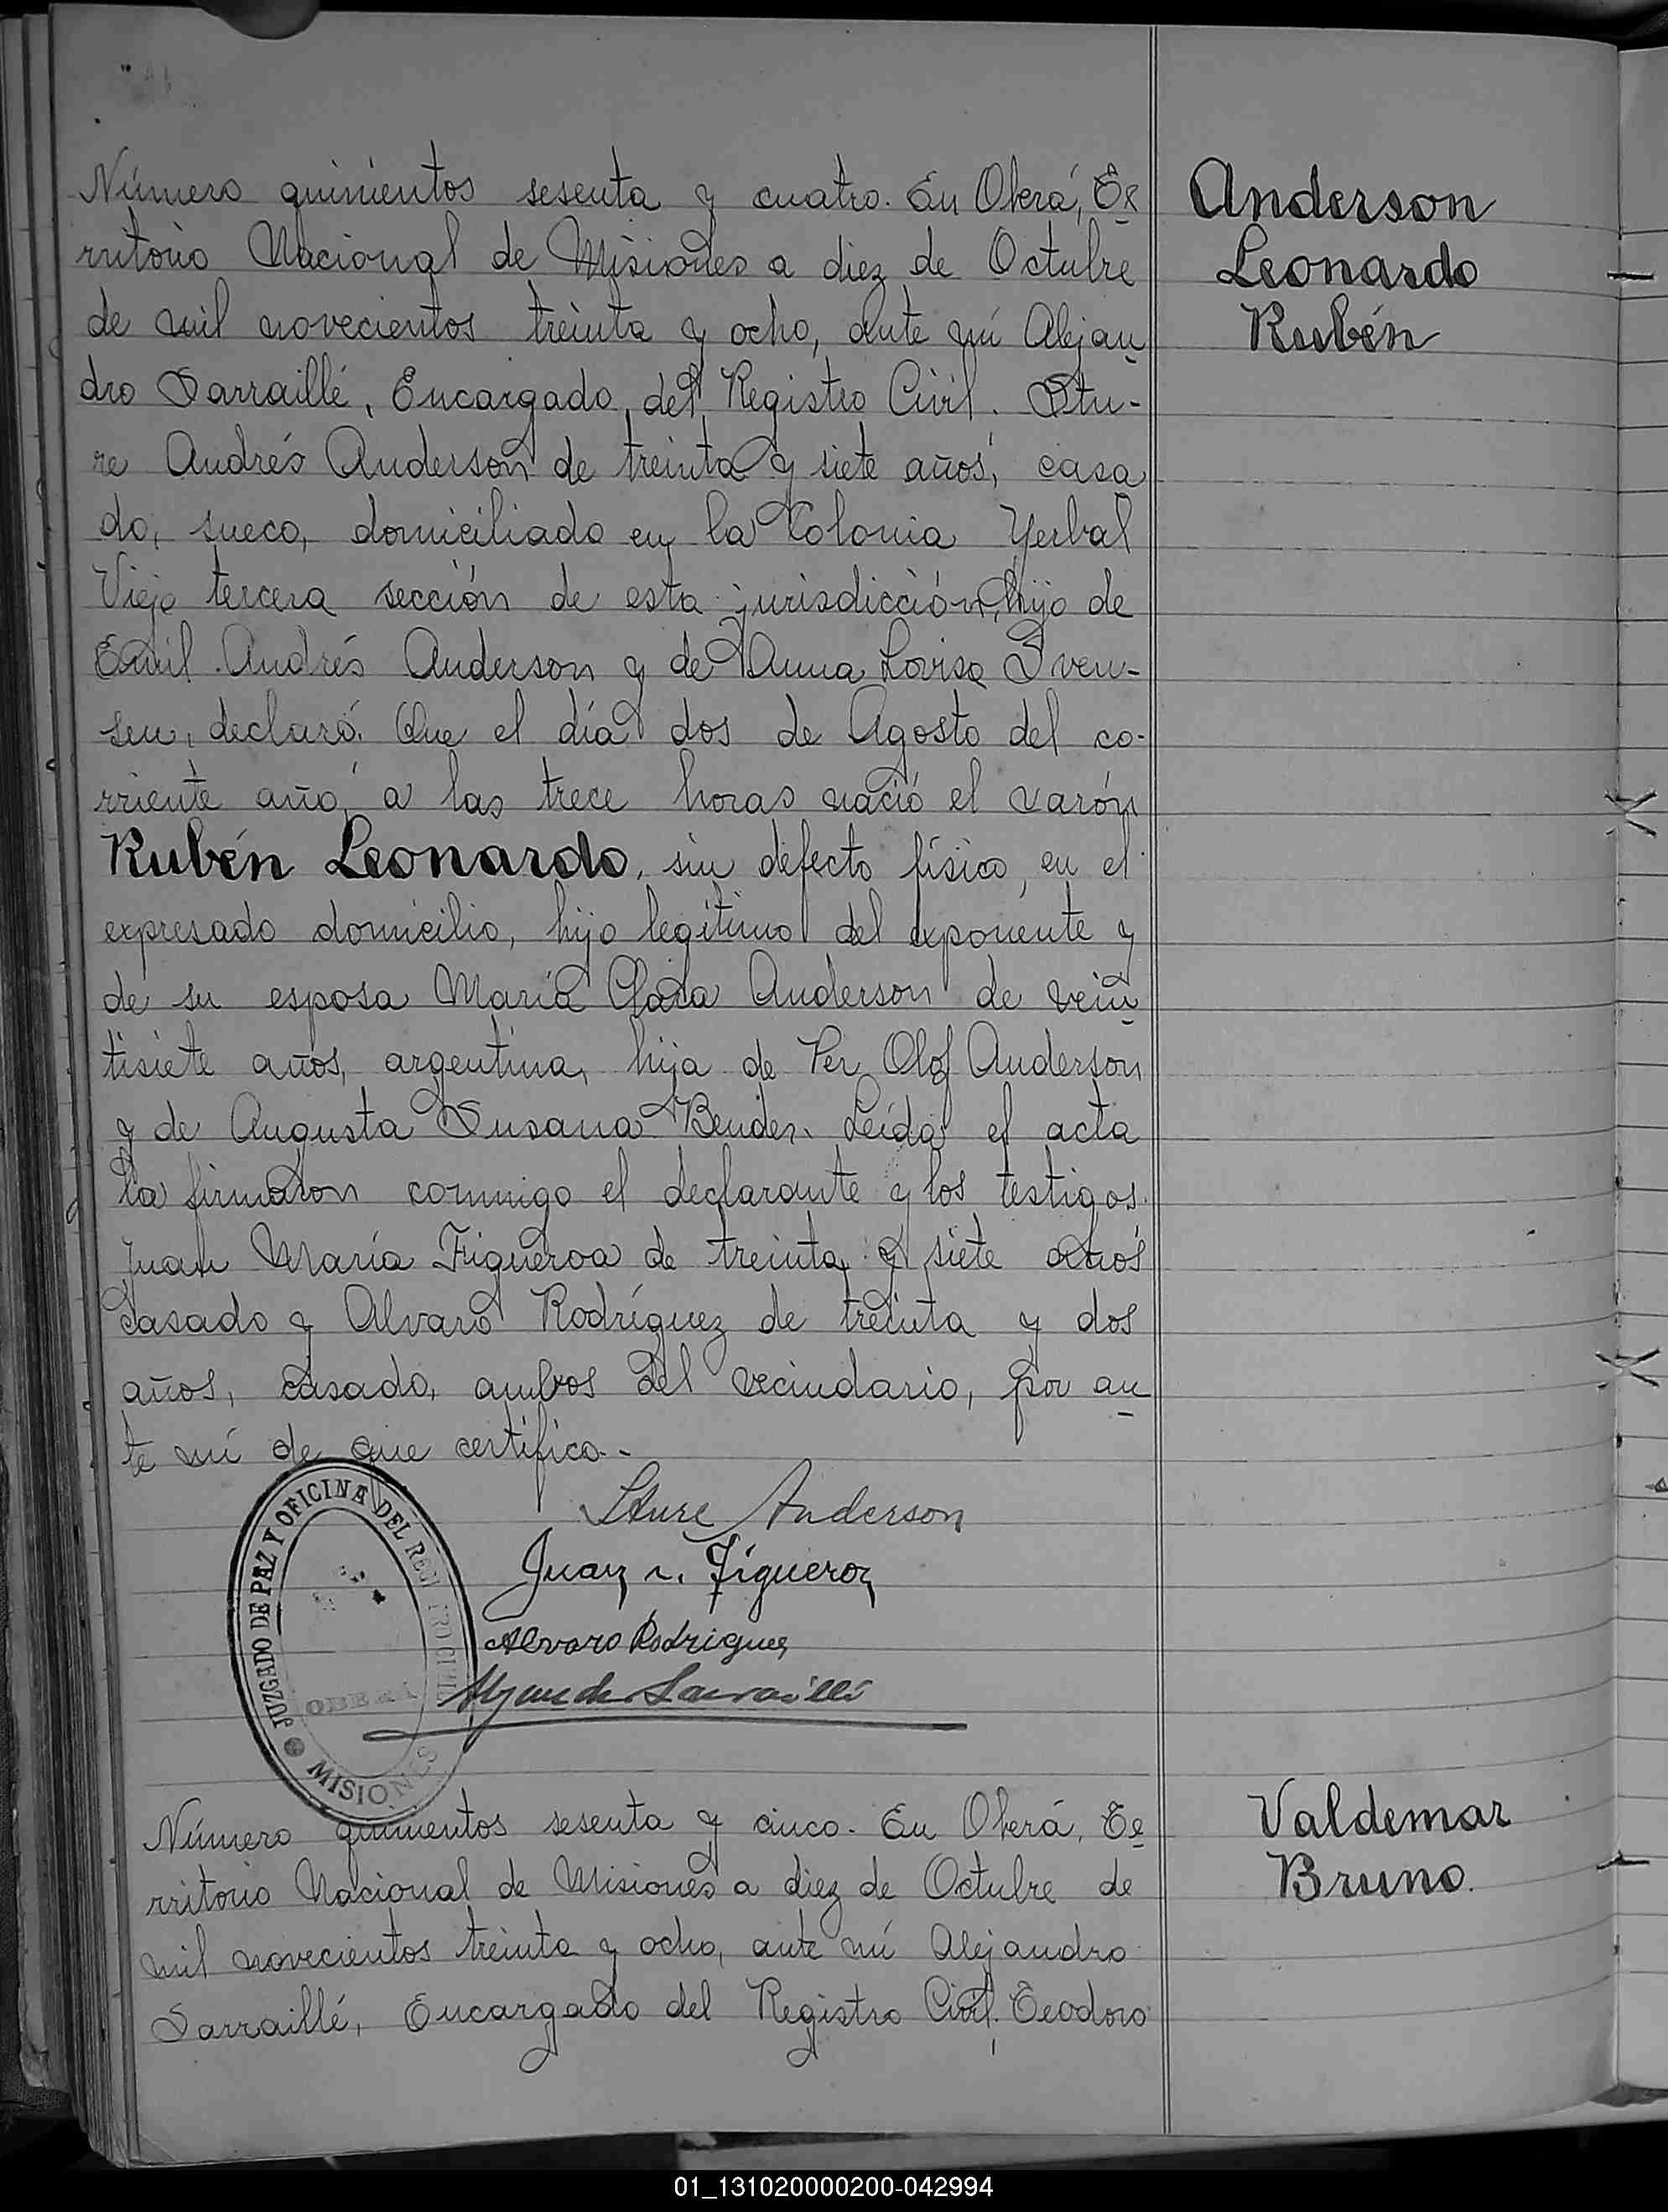 Número quinientos sesenta y cuatro. En Oberá, Te
rritorio Nacional de Misiones a diez de Octubre
de mil novecientos treinta y ocho, ante mí Alejan
dro Sarraillé, Encargado del Registro Civil. Stu-
re Andrés Anderson de treinta y siete años, casa
do, sueco, domiciliado en la Colonia Yerbal
Viejo tercera sección de esta jurisdicción, hijo de
Emil Andrés Anderson y de Anna Lovisa Sven-
sen, declaró: Que el día dos de Agosto del co-
rriente año, a las trece horas nació el varón
Rubén Leonardo, sin defecto físico, en el
expresado domicilio, hijo legítimo del exponente y
de su esposa María Clara Anderson de vein
tisiete años, argentina, hija de Per Olof Anderson
y de Augusta Susana Bender. Leída el acta
la firmaron conmigo el declarante y los testigos.
Juan María Figueroa de treinta y siete años
casado y Alvaro Rodríguez de treinta y dos
años, casado, ambos del vecindario, por an
te mí de que certifico.-
Sture Anderson
Juan M. Figueroa
Alvaro Rodriguez
Alejandro Sarraillé
JUZGADO DE PAZ Y OFICINA DEL REGISTRO CIVIL
OBERÁ
MISIONES
Anderson
Leonardo
Rubén
Número quinientos sesenta y cinco. En Oberá, Te
rritorio Nacional de Misiones a diez de Octubre de
mil novecientos treinta y ocho, ante mí Alejandro
Sarraillé, Encargado del Registro Civil. Teodoro
Valdemar
Bruno.
01_131020000200-042994